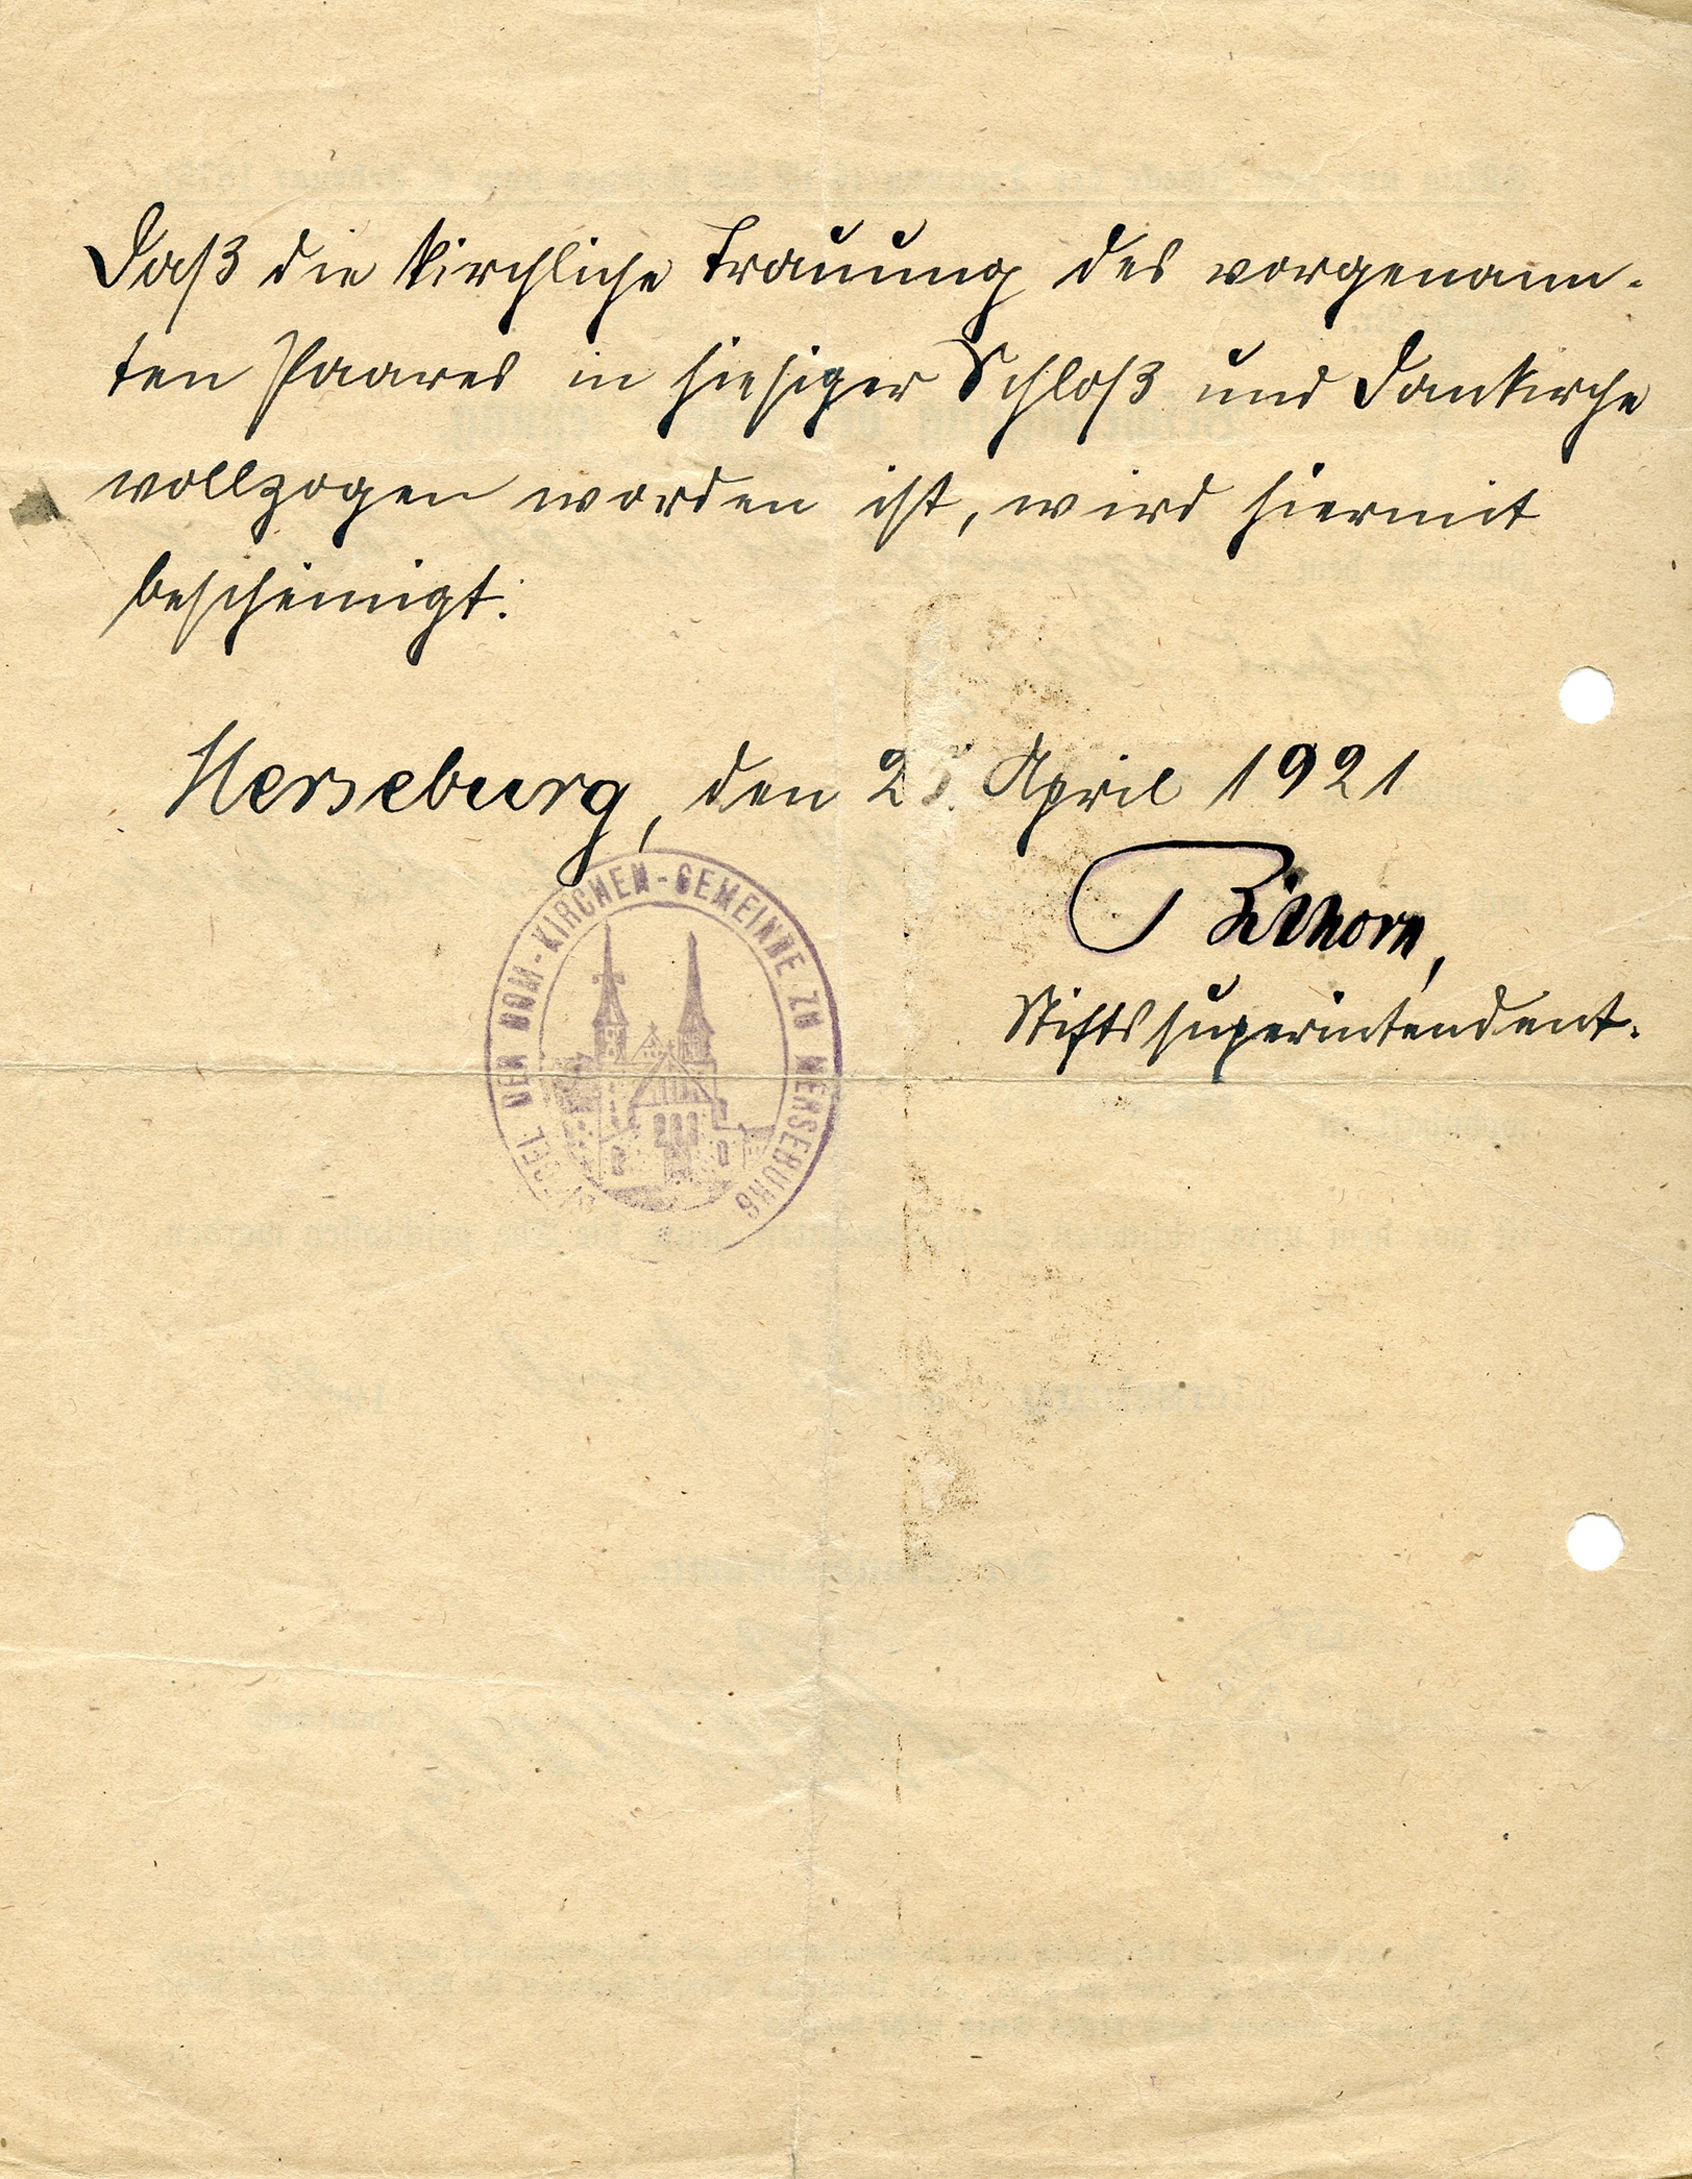 Daß die kirchliche Trauung des vorgenann-
ten Paares in hiesiger Schloß und Domkirche
vollzogen worden ist, wird hiermit
bescheinigt.
Merseburg, den 25. April 1921
Bithorn,
Stiftssuperintendent.
SIEGEL DER DOM-KIRCHEN-GEMEINDE ZU MERSEBURG